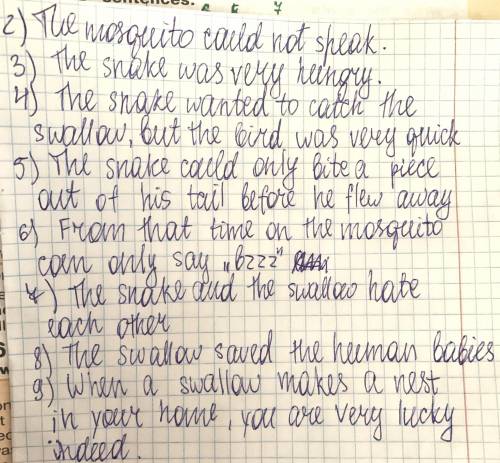 sentences.
2) The mosquito could not speak.
3) The snake was very hungry.
4) The snake wanted to catch the
swallow, but the bird was very quick
5) The snake could only bite a piece
out of his tail before he flew away
6) From that time on the mosquito
can only say „bzzz"
7) The snake and the swallow hate
each other
8) The swallow saved the human babies
9) When a swallow makes a nest
in your home, you are very lucky
indeed.